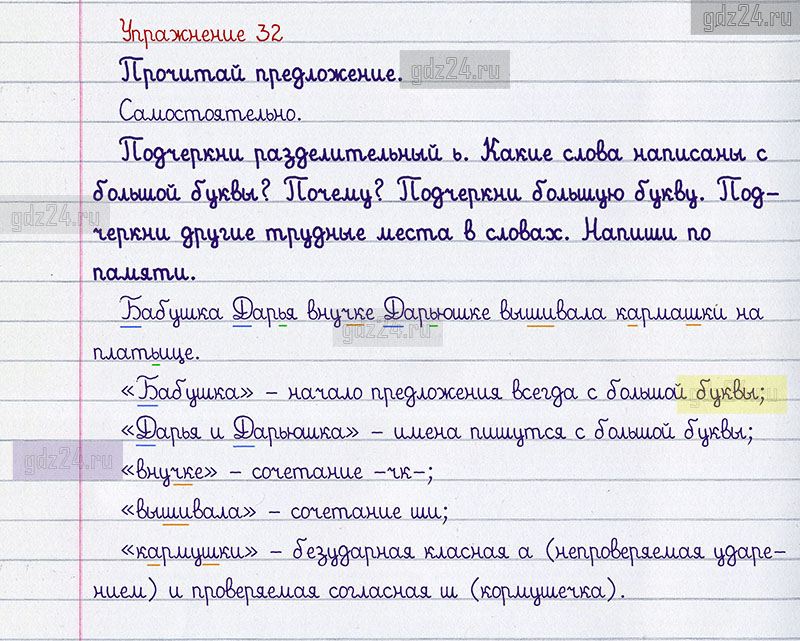 gdz24.ru
Упражнение 32
Прочитай предложение.
gdz24.ru
Самостоятельно.
Подчеркни разделительный ь. Какие слова написаны с
большой буквы? Почему? Подчеркни большую букву. Под-
gdz24.ru
черкни другие трудные места в словах. Напиши по
памяти.
Бабушка Дарья внучке Дарьюшке вышивала кармашки на
gdz24.ru
платьице.
«Бабушка» – начало предложения всегда с большой буквы;
gdz24.ru
«Дарья и Дарьюшка» – имена пишутся с большой буквы;
gdz24.ru
«внучке» – сочетание –чк–;
«вышивала» – сочетание ши;
«кармушки» – безударная класная а (непроверяемая ударе–
нием) и проверяемая согласная ш (кормушечка).